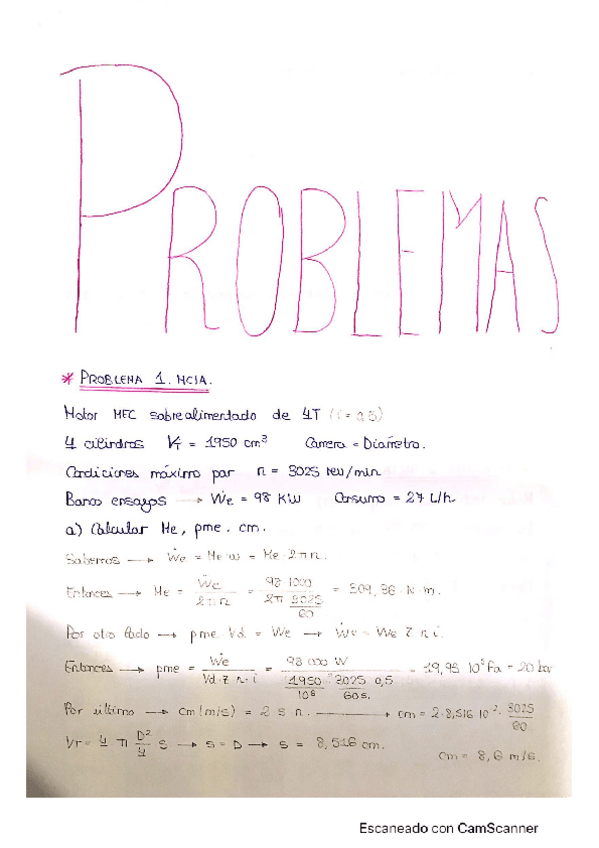 PROBLEMAS
* PROBLEMA 1. MCIA.
Motor MEC sobrealimentado de 4T (i = 0,5)
4 cilindros VT = 1950 cm³ Carrera = Diámetro.
Condiciones máximo par n = 3025 rev/min
Banco ensayos → Ẇe = 98 KW Consumo = 27 L/h
a) Calcular Me, pme. cm.
Sabemos → Ẇe = Me·ω = Me·2πn.
Entonces → Me = Ẇe / 2πn = 98·1000 / 2π 3025/60 = 309,36 N·m.
Por otro lado → pme·Vd = We → Ẇe = We z n i.
Entonces → pme = Ẇe / Vd·z·n·i = 98 000 W / 1950/10⁶ · 3025/60s. 0,5 = 19,95 10⁵ Pa - 20 bar
Por último → cm (m/s) = 2 s n. → cm = 2·8,516 10⁻² · 3025/60
VT = 4 π D²/4 S → S = D → S = 8,516 cm.
cm = 8,6 m/s.
Escaneado con CamScanner